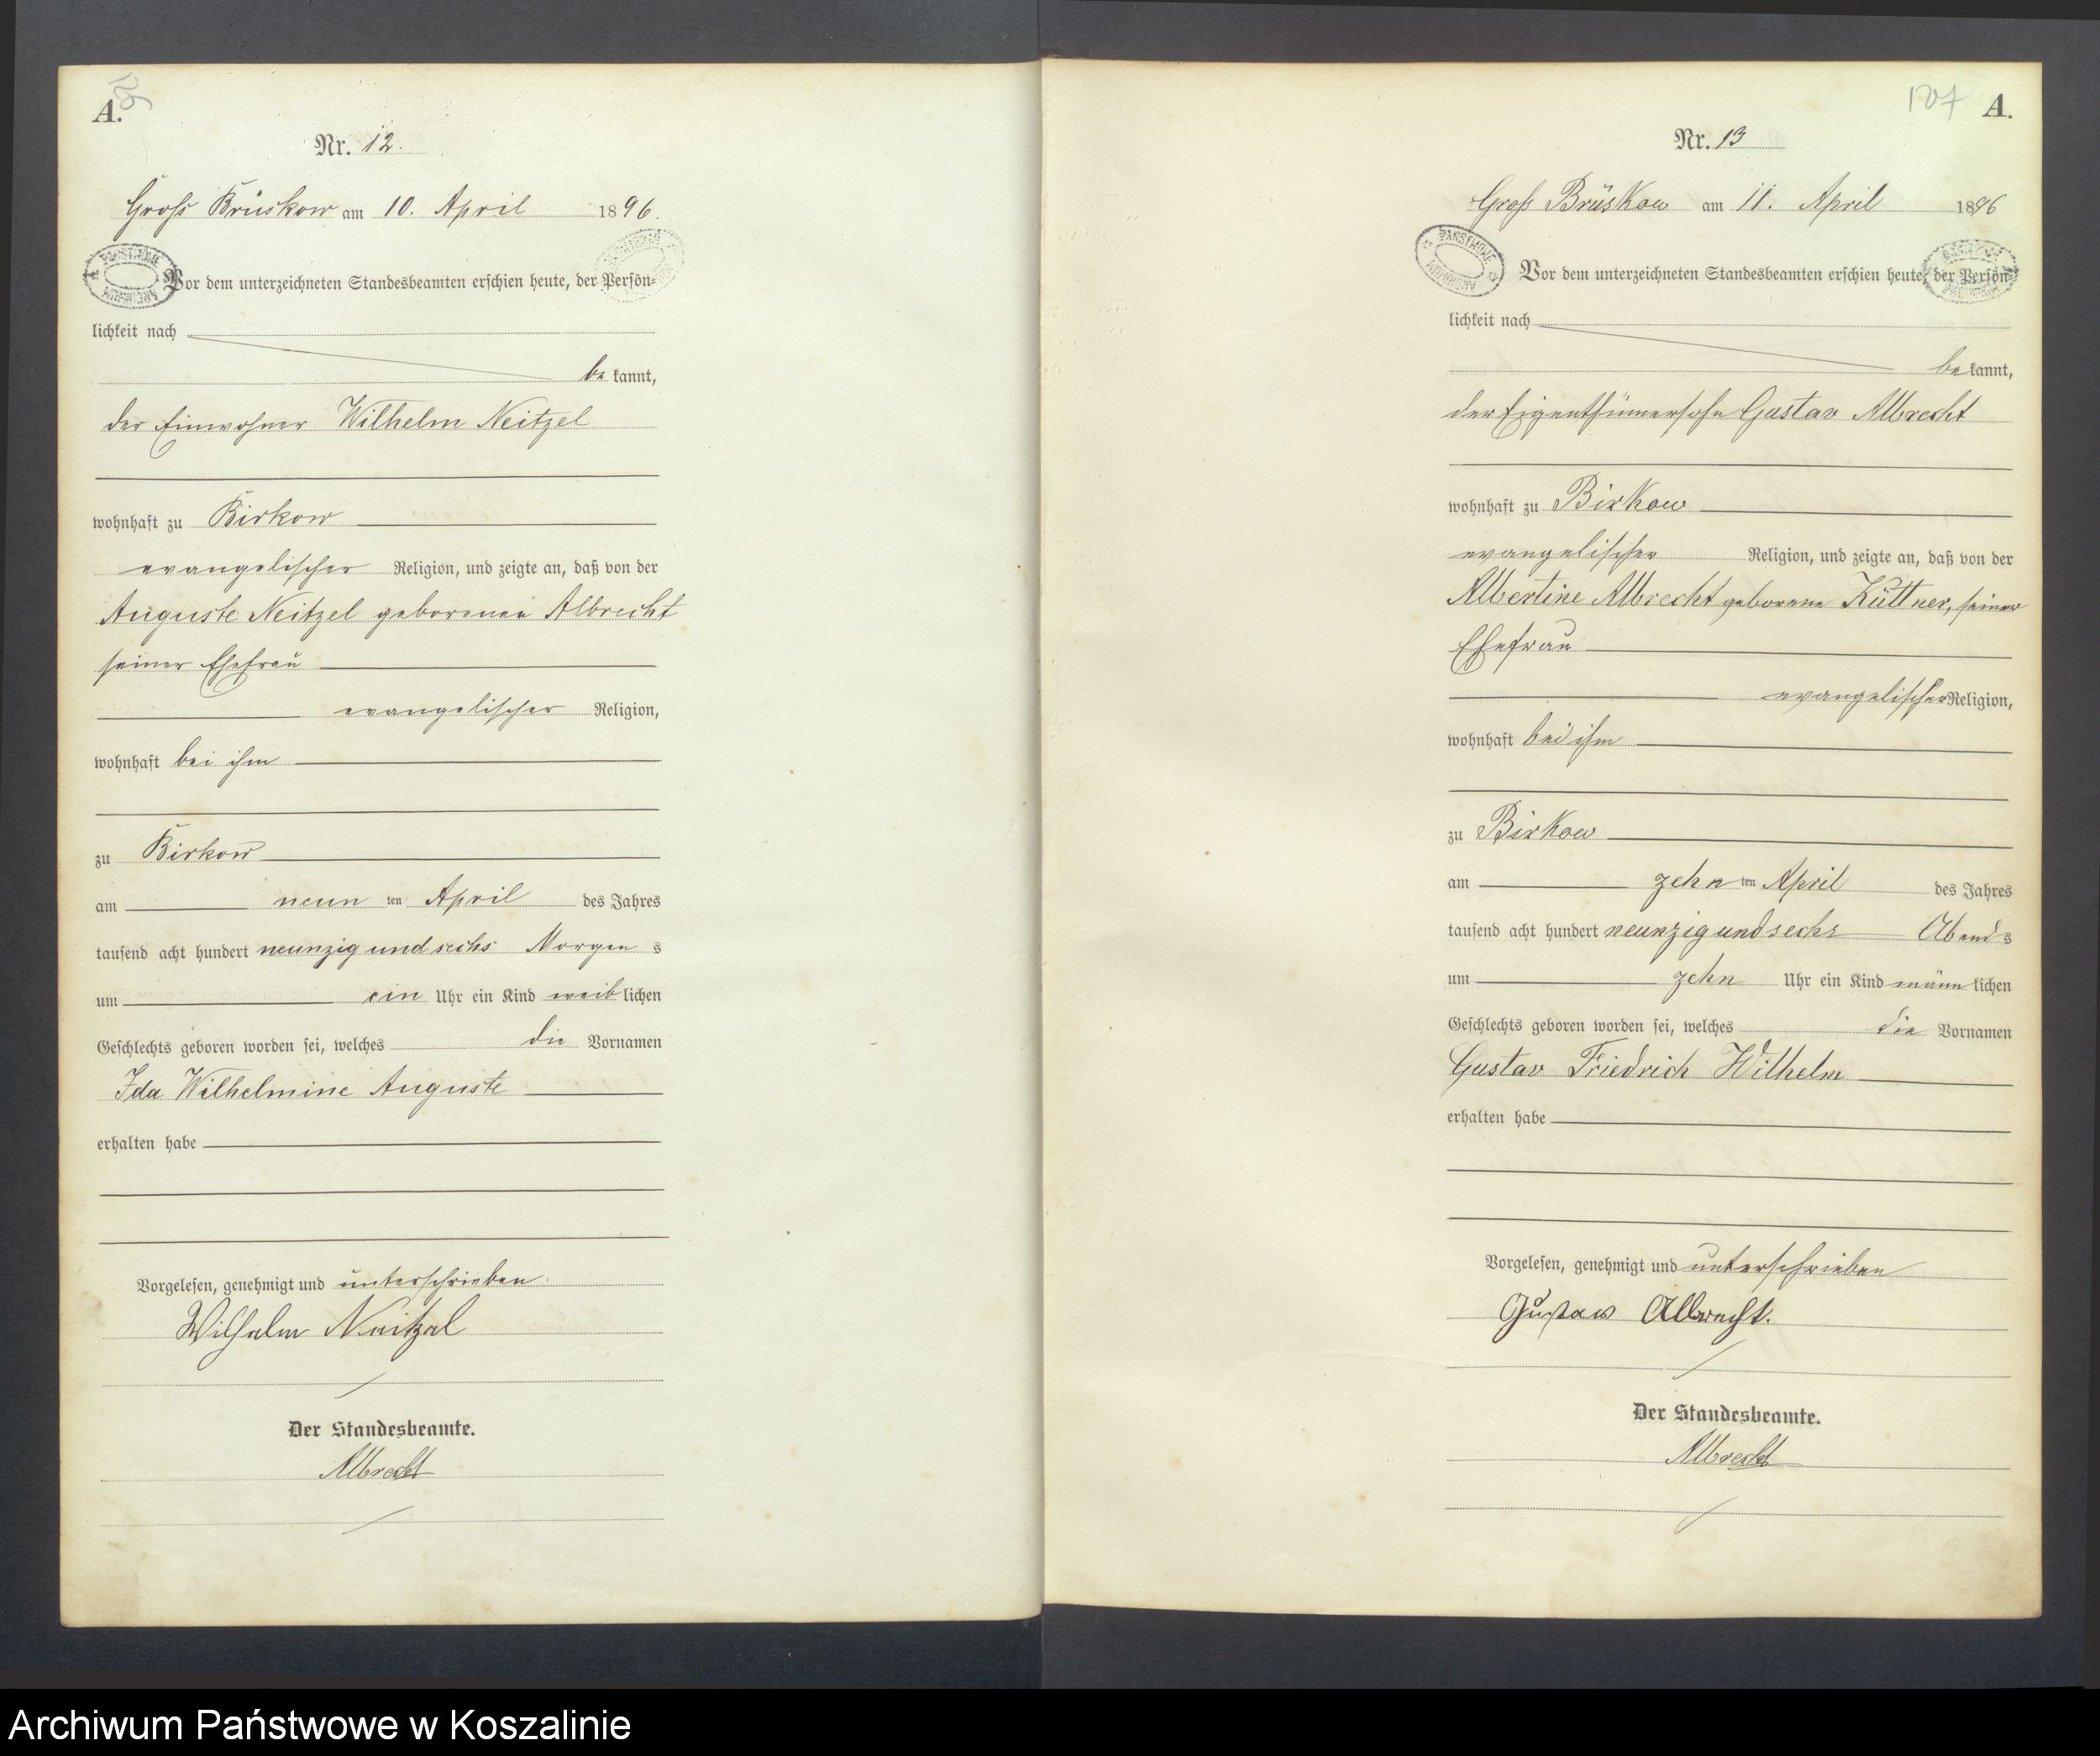 A.
Nr. 12.
Groß Brüskow am 10. April 1896.
Vor dem unterzeichneten Standesbeamten erschien heute, der Persön-
lichkeit nach
be kannt,
der Einwohner Wilhelm Neitzel
wohnhaft zu Birkow
evangelischer Religion, und zeigte an, daß von der
Auguste Neitzel geborenen Albrecht
seiner Ehefrau
evangelischer Religion,
wohnhaft bei ihm
zu Birkow
am neun ten April des Jahres
tausend acht hundert neunzig und sechs Morgen s
um ein Uhr ein Kind weib lichen
Geschlechts geboren worden sei, welches die Vornamen
Ida Wilhelmine Auguste
erhalten habe
Vorgelesen, genehmigt und unterschrieben.
Wilhelm Neitzel
Der Standesbeamte.
Albrecht
107 A.
Nr. 13
Groß Brüskow am 11. April 1896
PAŃSTWOWE ARCHIWUM
Vor dem unterzeichneten Standesbeamten erschien heute, der Persön-
lichkeit nach
be kannt,
der Eigenthümersohn Gustav Albrecht
wohnhaft zu Birkow
evangelischer Religion, und zeigte an, daß von der
Albertine Albrecht geborene Küttner, seiner
Ehefrau
evangelischer Religion,
wohnhaft bei ihm
zu Birkow
am zehn ten April des Jahres
tausend acht hundert neunzig und sechs Abend s
um zehn Uhr ein Kind männ lichen
Geschlechts geboren worden sei, welches die Vornamen
Gustav Friedrich Wilhelm
erhalten habe
Vorgelesen, genehmigt und unterschrieben
Gustav Albrecht.
Der Standesbeamte.
Albrecht
Archiwum Państwowe w Koszalinie